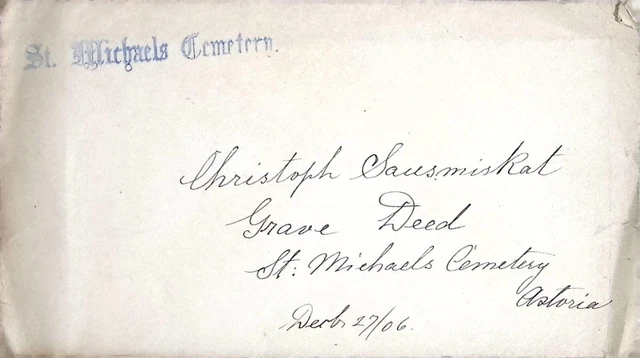 St. Michaels Cemetery.
Christoph Sausmiskat
Grave Deed
St: Michaels Cemetery
Astoria
Decbr 27/06.